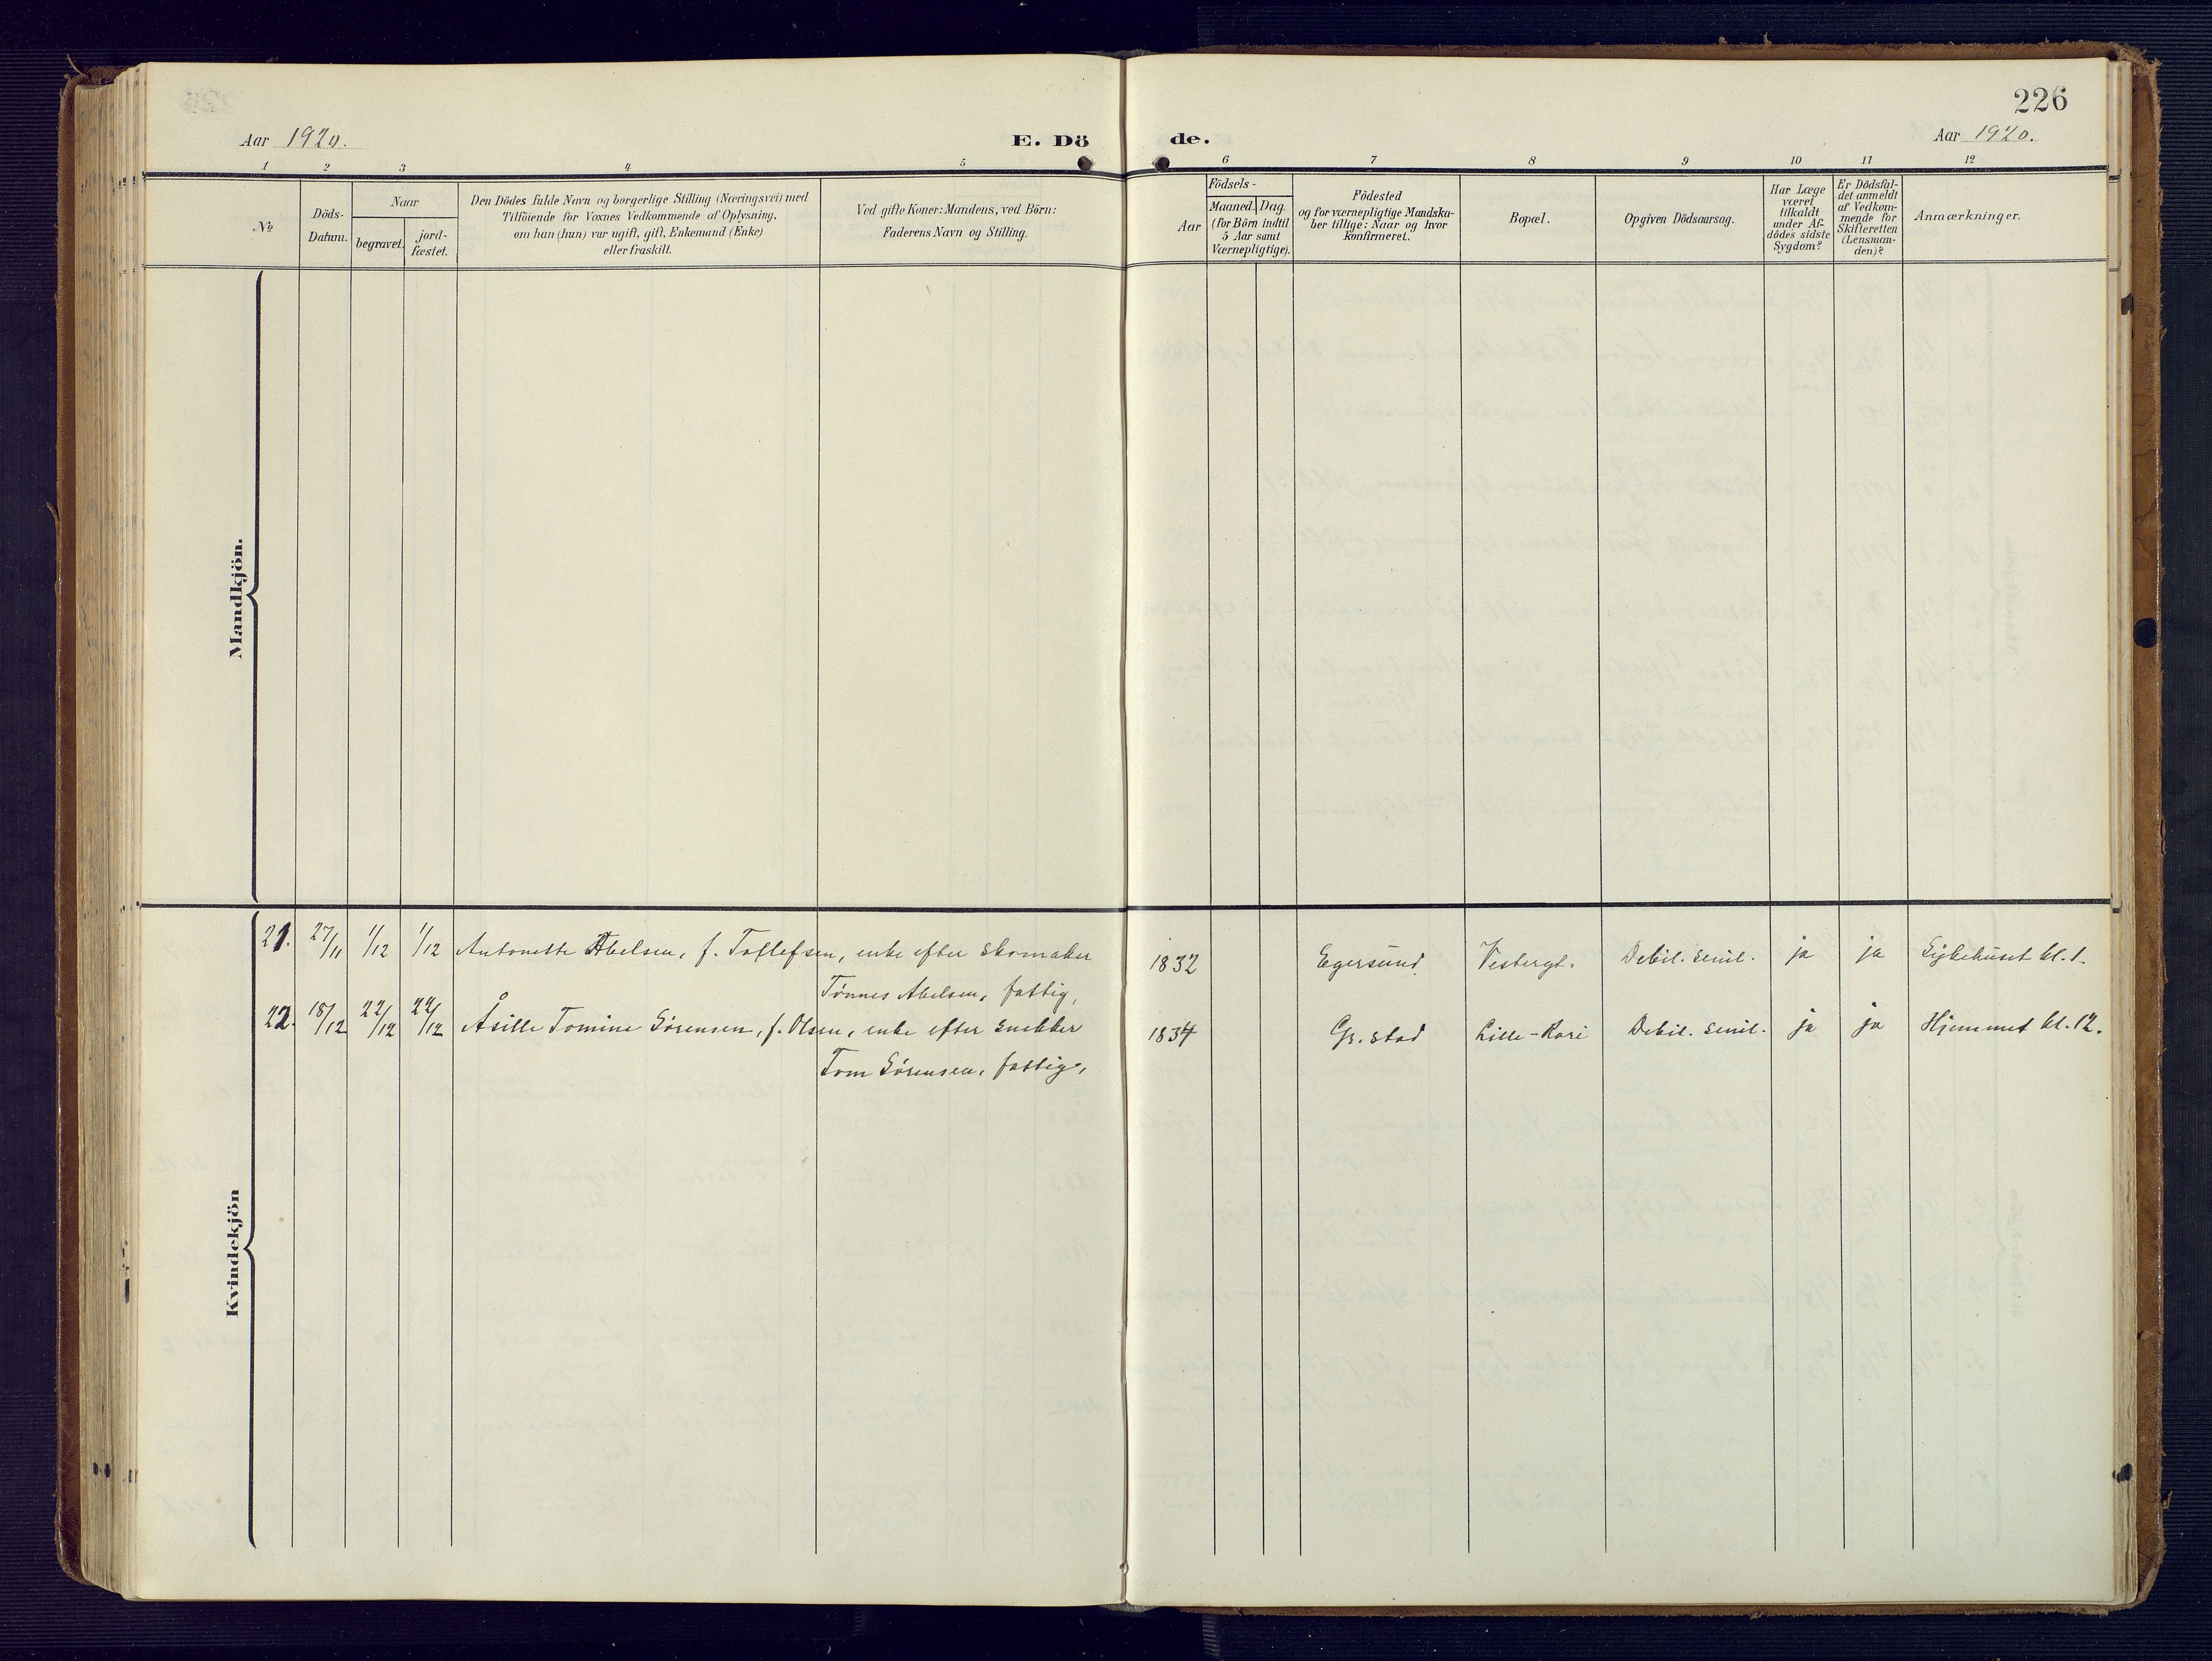 226
Aar 1920.
E. Dö
de.
Aar 1920.
1 2 3 4 5
6 7 8 9 10 11 12
№
Döds-
Datum.
Naar
begravet.
jord-
fæstet.
Den Dödes fulde Navn og borgerlige Stilling (Næringsvei) med
Tilföiende for Voxnes Vedkommende af Oplysning,
om han (hun) var ugift, gift, Enkemand (Enke)
eller fraskilt.
Ved gifte Koner: Mandens, ved Börn:
Faderens Navn og Stilling.
Födsels-
Aar
Maaned. Dag.
(for Börn indtil
5 Aar samt
Værnepligtige).
Födested
og for værnepligtige Mandska-
ber tillige: Naar og hvor
konfirmeret.
Bopæl.
Opgiven Dödsaarsag.
Har Læge
været
tilkaldt
under Af-
dödes sidste
Sygdom?
Er Dödsfal-
det anmeldt
af Vedkom-
mende for
Skifteretten
(Lensman-
den)?
Anmærkninger.
Mandkjön.
Kvindekjön
21. 27/11 1/12 1/12 Antonette Abelsen, f. Tollefsen, enke efter skomaker
Tönnes Abelsen, fattig,
1832 Egersund Vesbergt. Debil. senil. ja ja Sykehuset kl. 1.
22. 18/12 22/12 22/12 Åsille Tomine Sörensen, f. Olsen, enke efter snekker
Tom Sörensen, fattig,
1834 Gr. stad Lille-Kari Debil. senil. ja ja Hjemmet kl. 12.